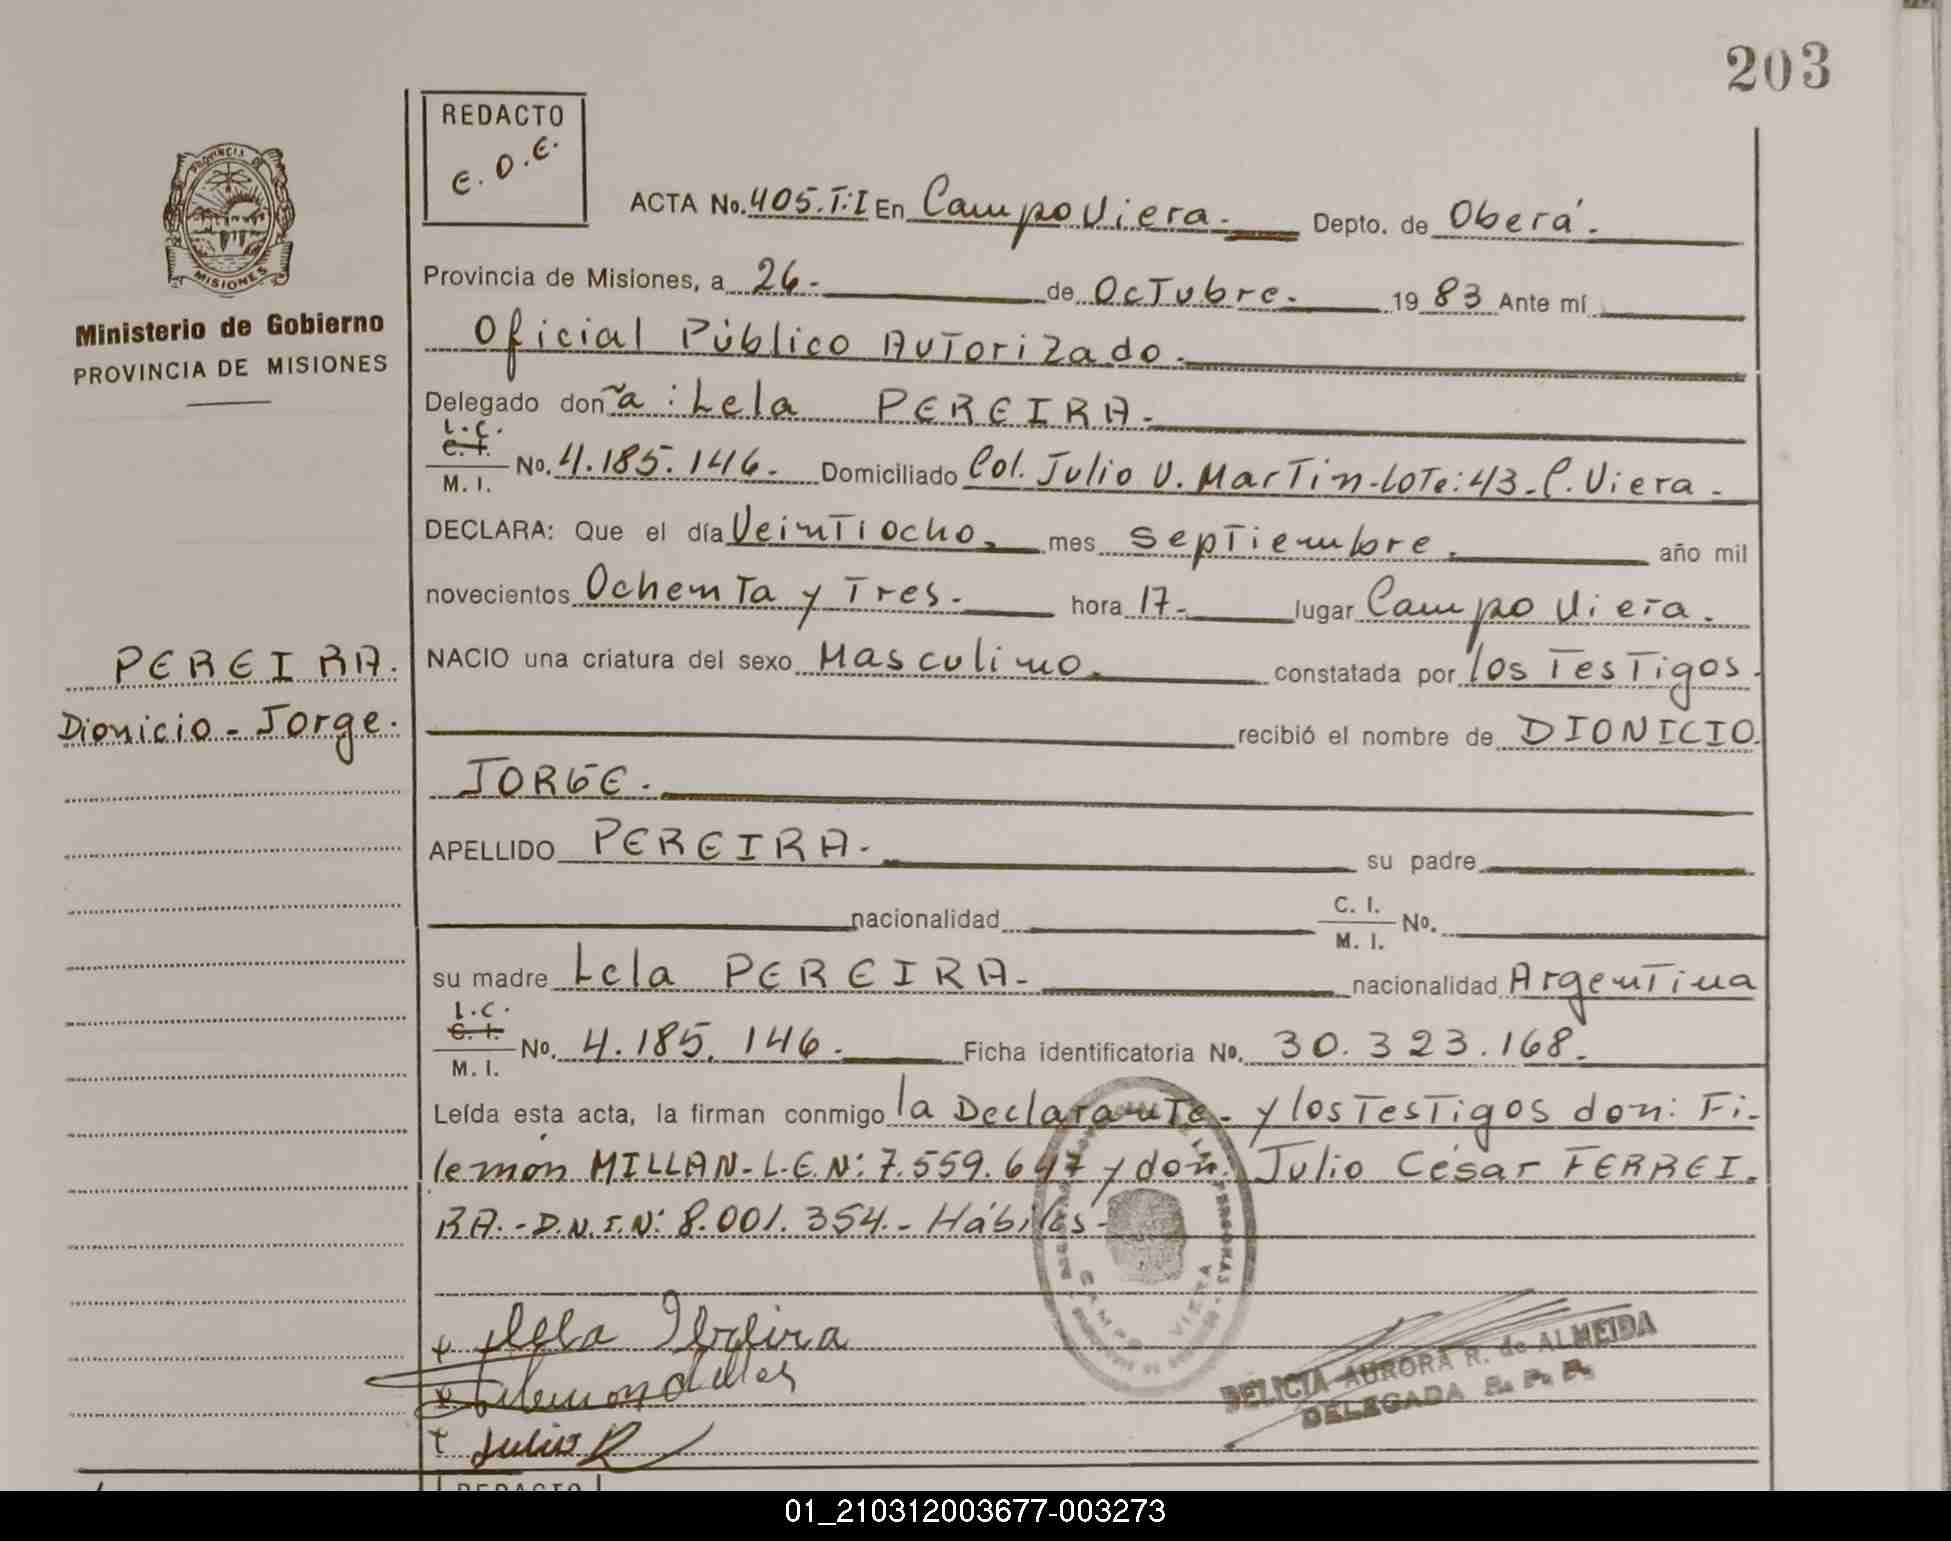 203
REDACTO
E.O.E.
PROVINCIA DE
MISIONES
Ministerio de Gobierno
PROVINCIA DE MISIONES
ACTA No. 405.T:I En Campo Viera. Depto. de Oberá.
Provincia de Misiones, a 26. de Octubre. 19 83 Ante mí
Oficial Público Autorizado.
Delegado doña: Lela PEREIRA.
L.C.
C. I.
M. I. No. 4.185.146. Domiciliado Col. Julio U. Martin-Lote:43-C. Viera.
DECLARA: Que el día Veintiocho. mes septiembre. año mil
novecientos Ochenta y Tres. hora 17. lugar Campo Viera.
PEREIRA.
Dionicio-Jorge.
NACIO una criatura del sexo Masculino. constatada por los Testigos.
recibió el nombre de DIONICIO
JORGE.
APELLIDO PEREIRA. su padre
nacionalidad C. I.
M. I. No.
su madre Lela PEREIRA. nacionalidad Argentina
L.C.
C. I.
M. I. No. 4.185.146. Ficha identificatoria No. 30.323.168.
Leída esta acta, la firman conmigo la Declarante. y los Testigos don: Fi-
lemón MILLAN-L.E.N: 7.559.647 y don: Julio César FERREI-
RA.-D.N.I.N: 8.001.354.- Hábiles-
CAMPO VIERA
Lela Pereira
Julio
DELICIA AURORA R. de ALMEIDA
DELEGADA R. P. P.
REDACTO
01_210312003677-003273